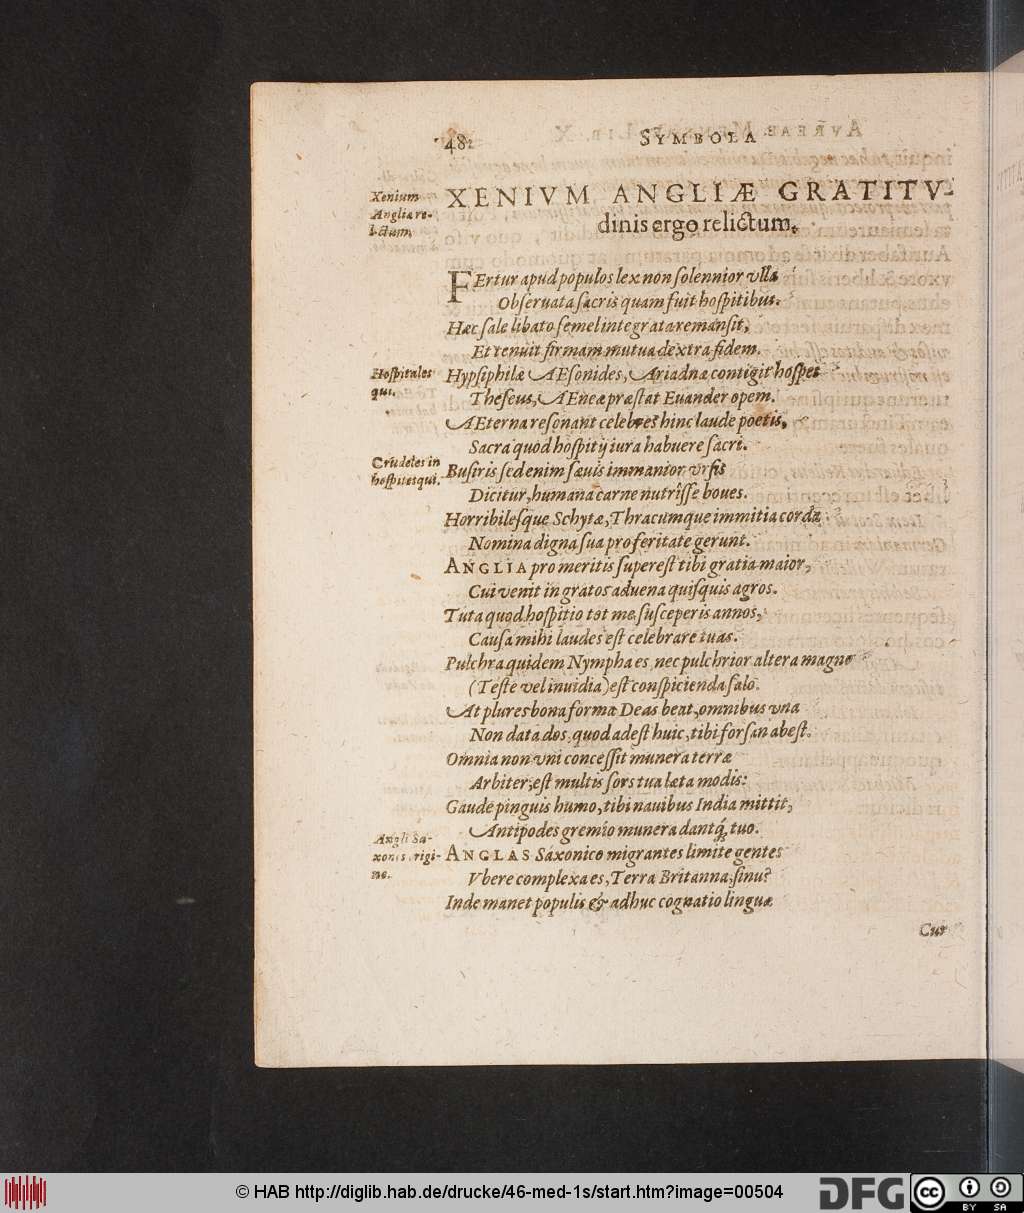 482
SYMBOLA
XENIVM ANGLIÆ GRATITV-
dinis ergo relictum.
Xenium
Angliæ re-
lictum.
FErtur apud populos lex non solennior vlla
Obseruata sacris quam fuit hospitibus.
Hæc sale libato semel integrata remansit,
Et tenuit firmam mutua dextra fidem.
Hospitales
qui.
Hypsiphilæ AEsonides, Ariadnæ contigit hospes
Theseus, AEneæ præstat Euander opem.
AEterna resonant celebres hinc laude poetis,
Sacra quod hospitij iura habuere sacri.
Crudeles in
hospites qui.
Busiris sed enim sæuis immanior vrsis
Dicitur, humana carne nutrîsse boues.
Horribilesque Schytæ, Thracumque immitia corda
Nomina digna sua pro feritate gerunt.
ANGLIA pro meritis superest tibi gratia maior,
Cui venit in gratos aduena quisquis agros.
Tuta quod hospitio tot me susceperis annos,
Causa mihi laudes est celebrare tuas.
Pulchra quidem Nympha es, nec pulchrior altera magno
(Teste vel inuidia) est conspicienda salo.
At plures bona formæ Deas beat, omnibus vna
Non data dos, quod adest huic, tibi forsan abest.
Omnia non vni concessit munera terræ
Arbiter; est multis sors tua læta modis:
Gaude pinguis humo, tibi nauibus India mittit,
Antipodes gremio munera dantq́, tuo.
Angli Sa-
xones origi-
ne.
ANGLAS Saxonico migrantes limite gentes
Vbere complexa es, Terra Britanna, sinu?
Inde manet populis & adhuc cognatio linguæ
Cur
© HAB http://diglib.hab.de/drucke/46-med-1s/start.htm?image=00504
DFG
cc
BY SA